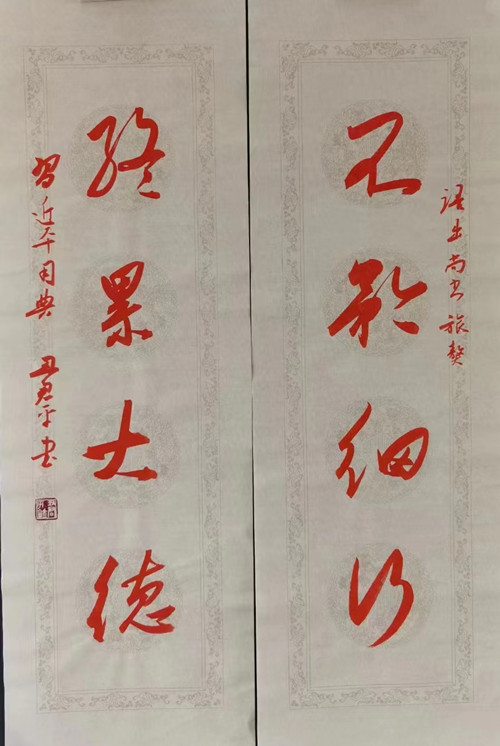 语出尚书旅獒
不矜细行
终累大德
习近平用典
丑君平书